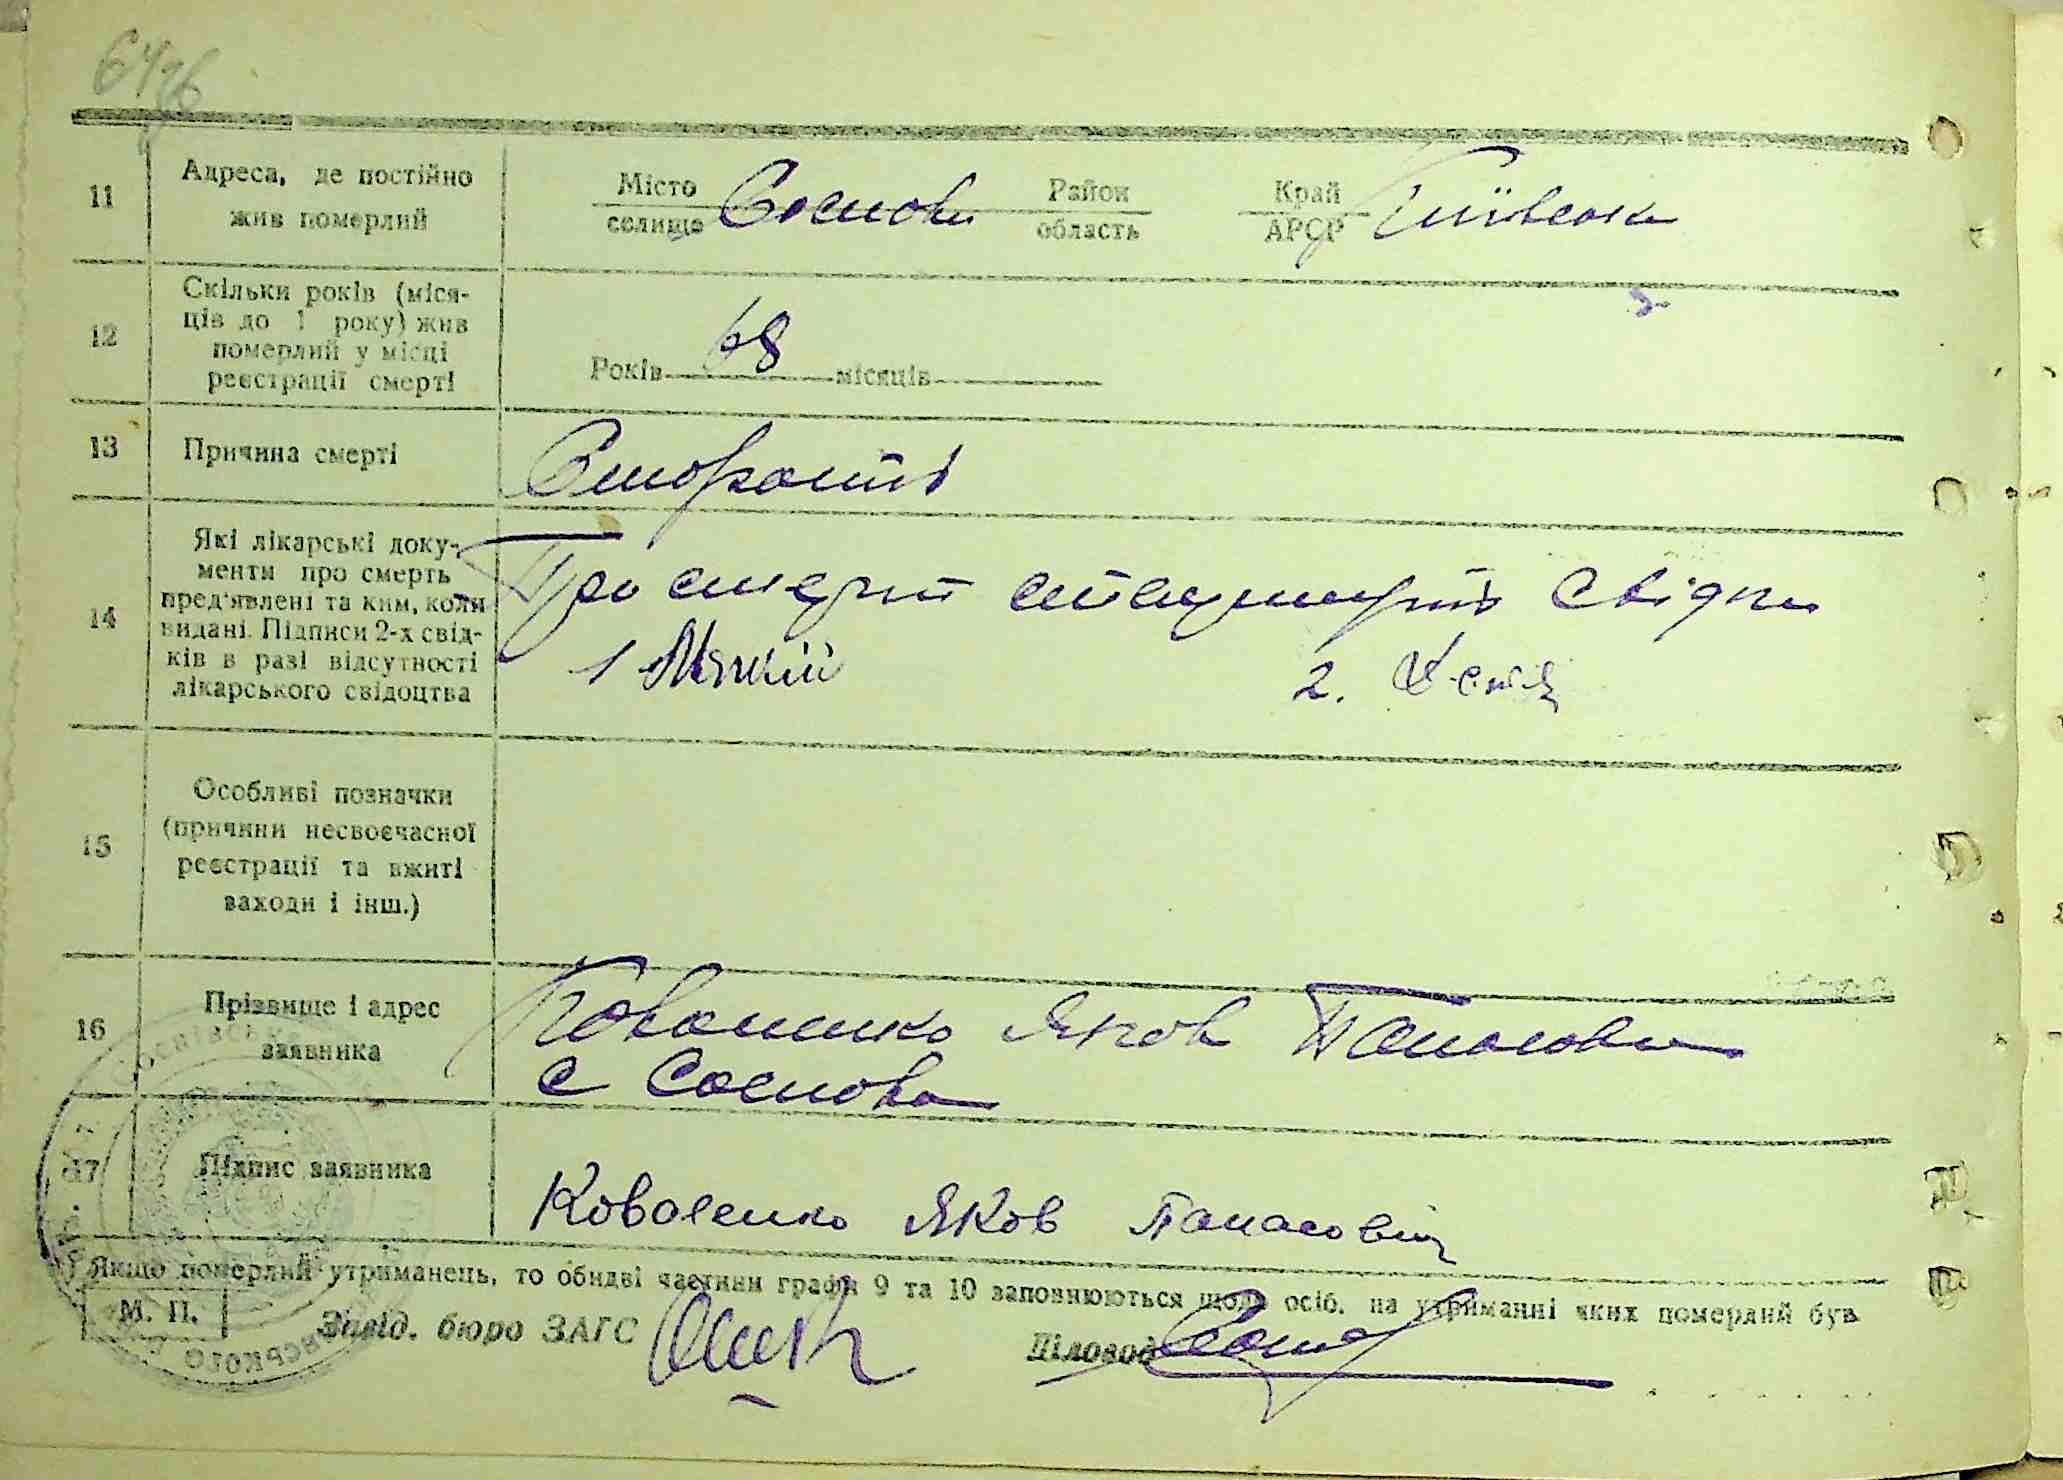 11
Адреса, де постійно
жив померлий
Місто
селище
Соснова
Район
область
Край
АРСР
Київська
12
Скільки років (міся-
ців до 1 року) жив
померлий у місці
реєстрації смерті
Років 68 місяців
13
Причина смерті
Старость
14
Які лікарські доку-
менти про смерть
пред'явлені та ким, коли
видані. Підписи 2-х свід-
ків в разі відсутності
лікарського свідоцтва
Про смерть свідки
1
2.
15
Особливі позначки
(причини несвоєчасної
реєстрації та вжиті
заходи і інш.)
16
Прізвище і адрес
заявника
Коваленко Яков Панасович
с Соснова
17
Підпис заявника
Коваленко Яков Панасович
Якщо померлий утриманець, то обидві частини графи 9 та 10 заповнюються щодо осіб, на утриманні яких померлий був
М. П.
Завід. бюро ЗАГС
Діловод